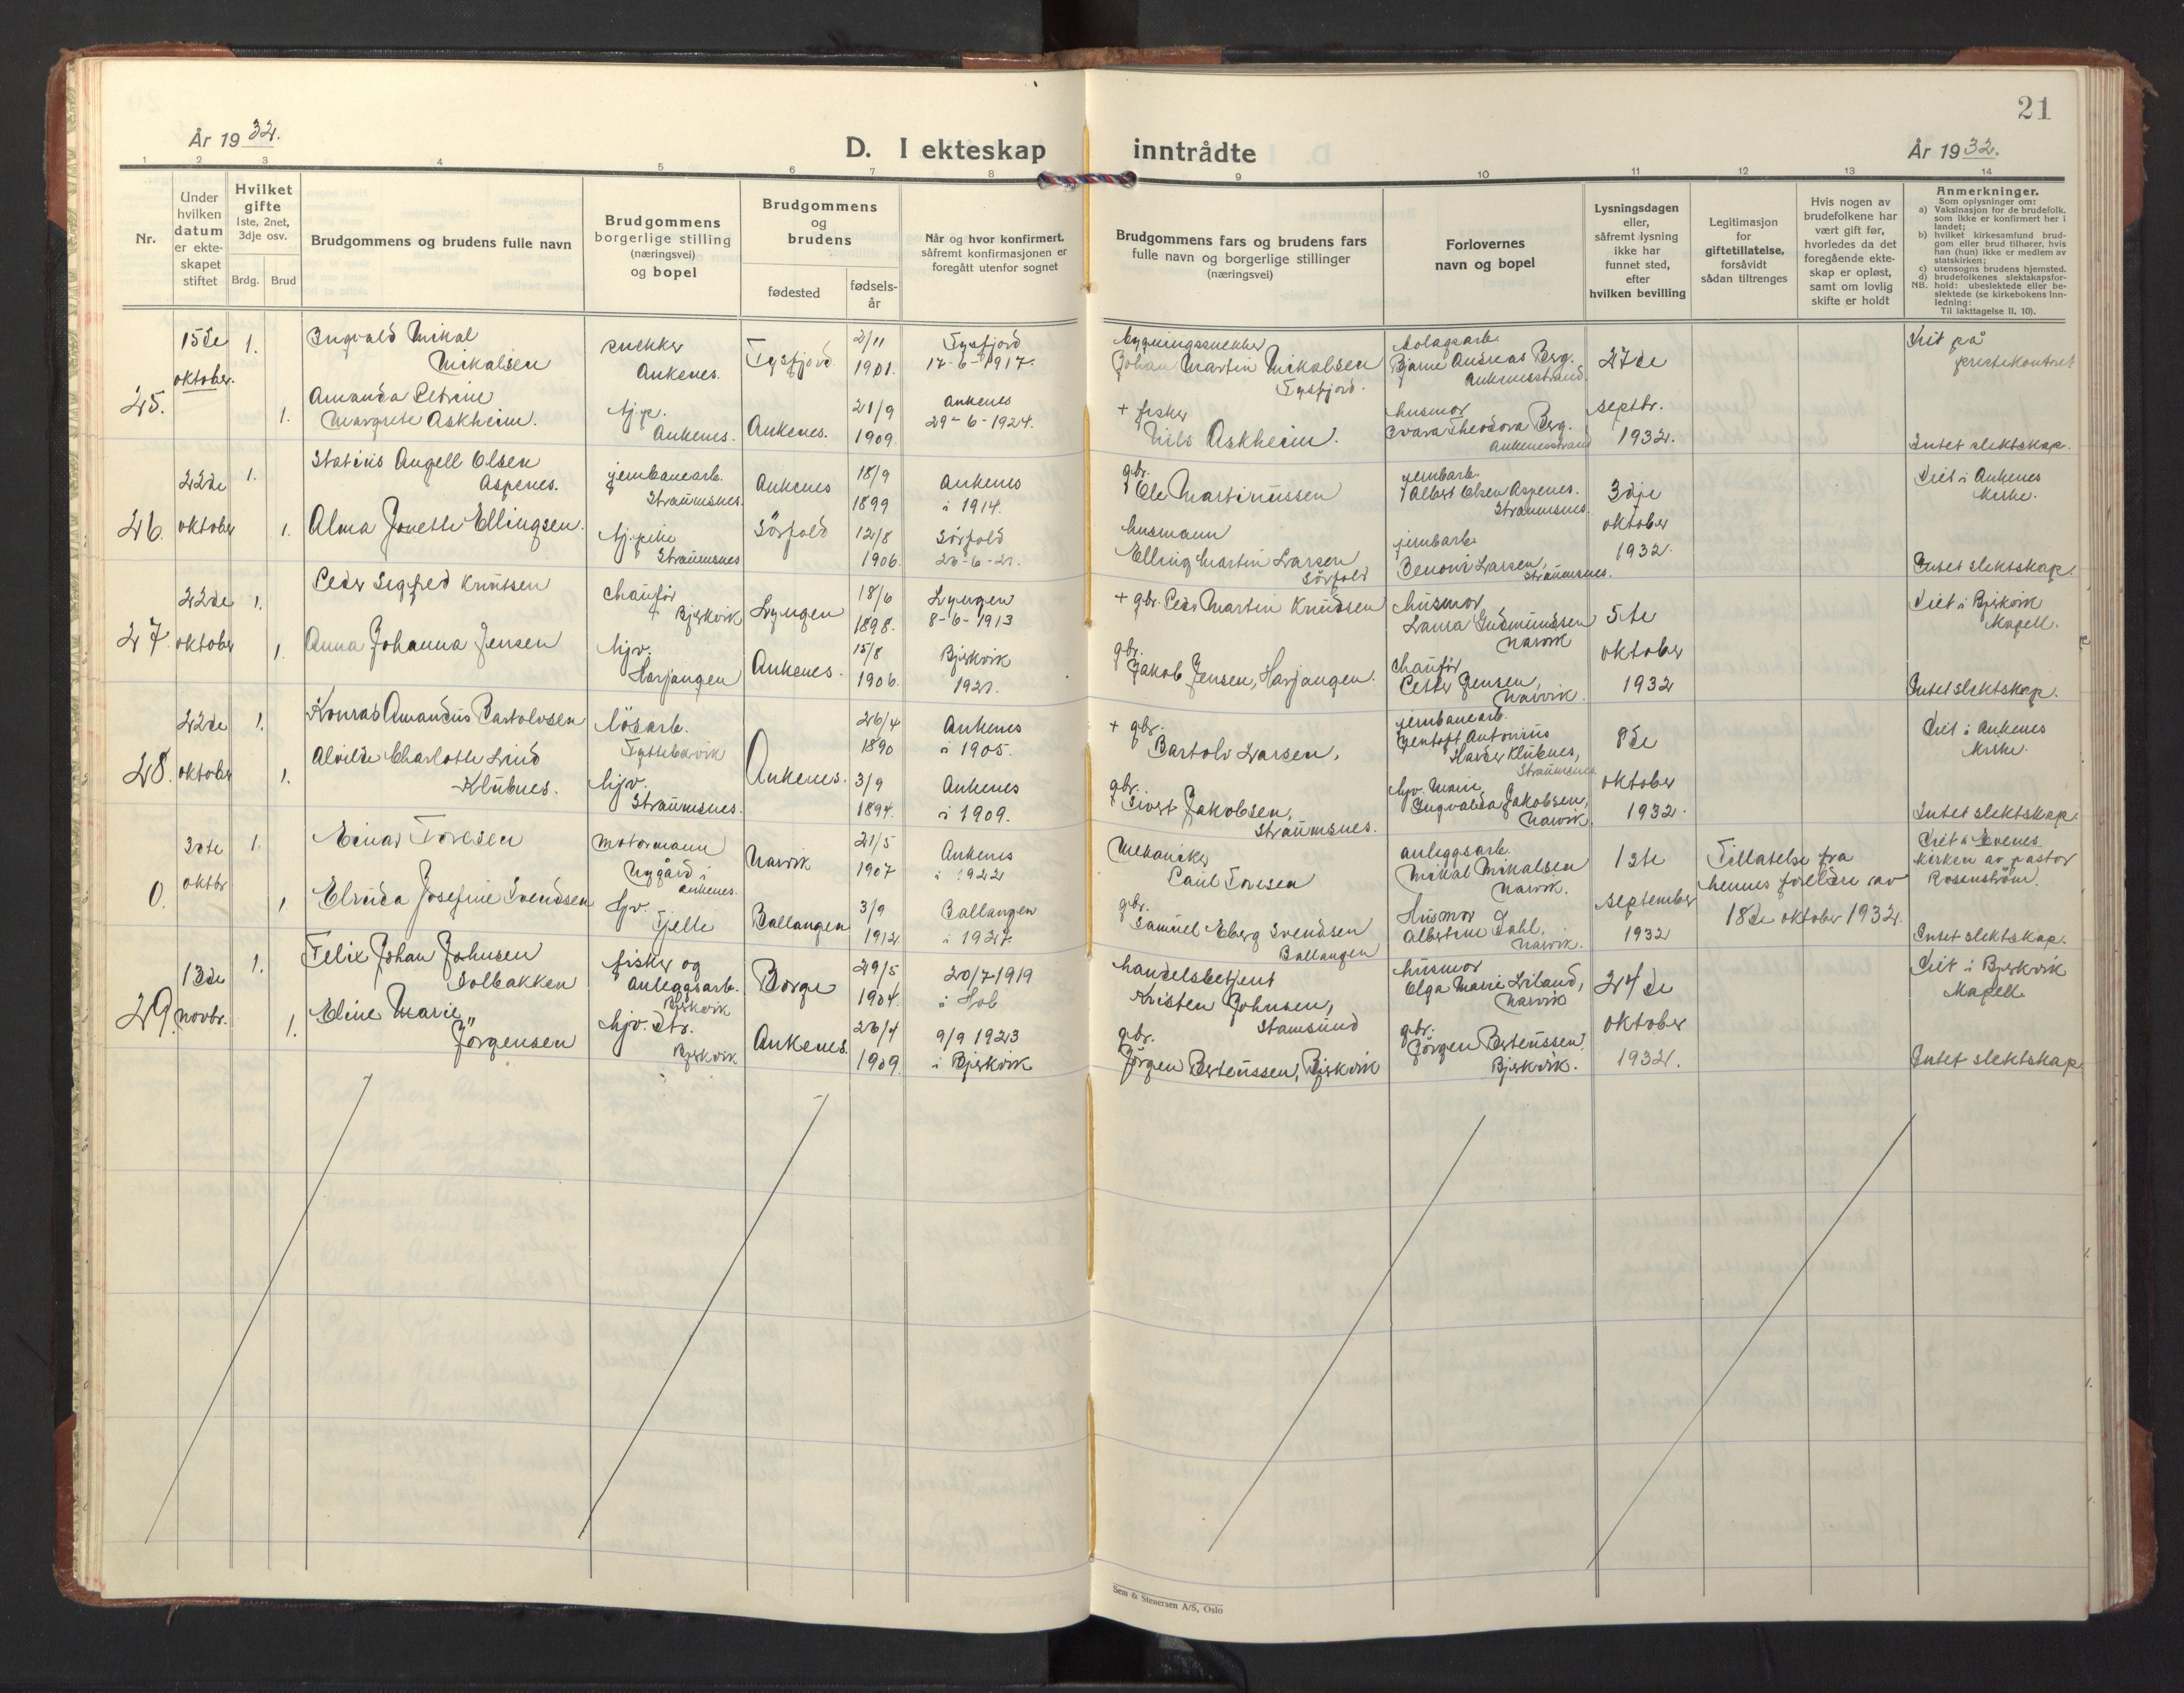 21
År 1932.
D. I ekteskap inntrådte
År 1932.
1 2 3 4 5 6 7 8 9 10 11 12 13 14
Nr.
Under hvilken datum er ekteskapet stiftet
Hvilket gifte
1ste, 2net, 3dje osv.
Brdg. Brud
Brudgommens og brudens fulle navn
Brudgommens borgerlige stilling (næringsvei) og bopel
Brudgommens og brudens
fødested
fødsels-år
Når og hvor konfirmert, såfremt konfirmasjonen er foregått utenfor sognet
Brudgommens fars og brudens fars fulle navn og borgerlige stillinger (næringsvei)
Forlovernes navn og bopel
Lysningsdagen eller, såfremt lysning ikke har funnet sted, efter hvilken bevilling
Legitimasjon for giftetillatelse, forsåvidt sådan tiltrenges
Hvis nogen av brudefolkene har vært gift før, hvorledes da det foregående ekteskap er opløst, samt om lovlig skifte er holdt
Anmerkninger.
Som oplysninger om:
a) Vaksinasjon for de brudefolk. som ikke er konfirmert her i landet;
b) hvilket kirkesamfund brudgom eller brud tilhører, hvis han (hun) ikke er medlem av statskirken;
c) utensogns brudens hjemsted.
d) brudefolkenes slektskapsforhold: ubeslektede eller beslektede (se kirkebokens Innledning:
NB.
Til iakttagelse II, 10).
25.
15de oktober.
1.
Ingvald Mikal Mikalsen
snekker
Ankenes.
Tysfjord
2/11 1901.
Tysfjord
17-6-1917.
bygningssnekker
Johan Martin Mikalsen
Tysfjord.
Bjarne Andreas Berg.
Ankenesstrand
27de septbr. 1932.
Viet på prestekontoret
1.
Amanda Petrine Margrete Askheim.
hj.p.
Ankenes.
Ankenes.
21/9 1909.
Ankenes
29-6-1924.
+ fisker
Nils Askheim.
husmor
Svara Theodora Berg.
Ankenesstrand
Intet slektskap.
26.
22de oktober
1.
Statius Angell Olsen Aspenes.
jernbanearb.
Straumsnes.
Ankenes
18/9 1899
Ankenes
i 1914.
gbr.
Ole Martinussen
jernbarb.
Albert Olsen Aspenes.
Straumsnes
3dje oktober 1932.
Viet i Ankenes kirke.
1.
Alma Jonette Ellingsen.
hj.pike
Straumsnes
Sörfold
12/8 1906.
Sörfold
husmann
Elling Martin Larsen
Sörfold
jernbarb.
Benoni Larsen,
Straumsnes.
Intet slektskap.
27.
22de oktober
1.
Peder Sigfred Knutsen
chauför
Bjerkvik
Lyngen
18/6 1898.
Lyngen
8-6-1913
+ gbr. Peder Martin Knudsen
husmor
Laura Gudmundsen
Narvik
5te oktober 1932
Viet i Bjerkvik kapell.
1.
Anna Johanna Jensen
hjv.
Harjangen
Ankenes.
15/8 1906.
Bjerkvik
1921.
gbr.
Jakob Jensen, Harjangen.
chauför
Petter Jensen,
Narvik.
Intet slektskap.
28.
22de oktober
1.
Konrad Amandus Bartolosen
lösarb.
Tyttebærvik
Ankenes.
26/4 1890
Ankenes
i 1905.
+ gbr.
Bartolo Larsen,
jernbanearb.
Jentoft Antonius Harder Klubnes,
Straumsnes.
8de oktober 1932.
Viet i Ankenes kirke.
1.
Alvilde Charlotte Lind Klubnes.
hjv.
Straumsnes.
3/9 1894.
Ankenes
i 1909.
gbr.
Sivert Jakobsen,
Straumsnes.
hjv. Marie Ingvalda Jakobsen,
Narvik
Intet slektskap.
0.
oktbr
1.
Einar Toresen
motormann
Nygård i Ankenes.
Narvik
21/5 1907
Ankenes
i 1922
Mekaniker
Paul Toresen
anleggsarb.
Mikal Mikalsen
Narvik.
1ste september 1932
Tillatelse fra hennes foreldre av 18de oktober 1932.
Viet i Evenes kirken av pastor Rosenström.
1.
Elvida Josefine Svendsen
hjv.
Fjelle
Ballangen
3/9 1912
Ballangen
i 1927.
gbr.
Samuel Eberg Svendsen
Ballangen
Husmor
Albertine Dahl.
Narvik.
Intet slektskap.
29.
13de novbr.
1.
Felix Johan Johnsen Solbakken
fisker og anleggsarb.
Bjerkvik
Borge
29/5 1904.
20/7 1919
i Hol
handelsbetjent
Kristen Johnsen,
Stamsund
husmor
Olga Marie Liland,
Narvik
24de oktober 1932.
Viet i Bjerkvik kapell
1.
Eline Marie Jörgensen
hjv. dtr.
Bjerkvik
Ankenes.
26/4 1909.
9/9 1923
i Bjerkvik
gbr.
Jörgen Berteussen, Bjerkvik
gbr.
Jörgen Berteussen.
Bjerkvik.
Intet slektskap.
Sem & Stenersen A/S, Oslo